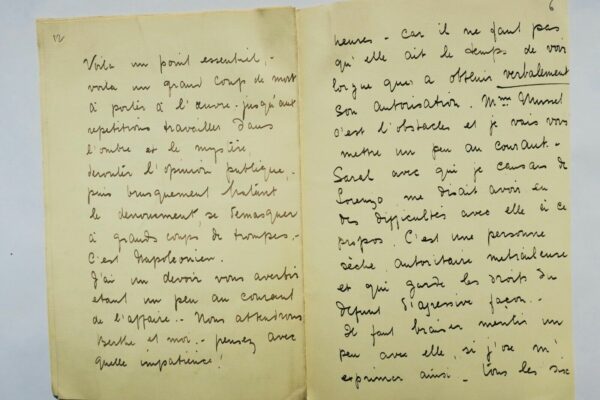 12
Voilà un point essentiel,-
voilà un grand coup de mort
à portés à l'œuvre - jusqu'aux
repetitions travailler dans
l'ombre et le mystère,
derouter l'opinion publique,-
puis brusquement hatant
le denouement, se demasquer
à grands coups de trompes,-
C'est Napoleonien.
J'ai un devoir vous avertir
etant un peu au courant
de l'affaire.- Nous attendrons
Berthe et moi.- pensez avec
quelle impatience!
6
heures - Car il ne faut pas
qu'elle ait le temps de voir
lorgue qui a obtenir verbalement
son autorisation. Mme Musset
c'est l'obstacles et je vais vous
mettre un peu au courant.-
Sarah avec qui je causais de
Lorenzo, me disait avoir eu
des difficultés avec elle à ce
propos. C'est une personne
sèche, autoritaire
et qui garde les droits du
defunt d'agressive façon.-
Il faut biaiser mentir un
peu avec elle, si j'ose m'
exprimer ainsi - Tous les